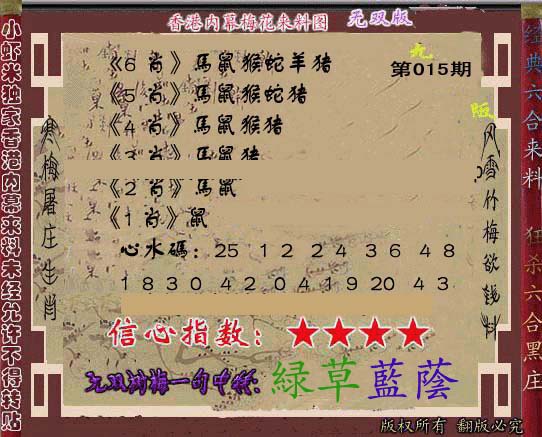 香港内幕梅花来料图 无双版
小虾米独家香港内幕来料未经允许不得转贴
经典六合来料 狂杀六合黑庄
无
第015期
版
寒梅屠庄生肖
风雪竹梅欲钱料
《6 肖》馬鼠猴蛇羊猪
《5 肖》馬鼠猴蛇猪
《4 肖》馬鼠猴猪
《3 肖》馬鼠猪
《2 肖》馬鼠
《1 肖》鼠
心水碼：25 12 24 36 48
18 30 42 04 19 20 43
信心指数：★★★★
綠草藍蔭
版权所有 翻版必究